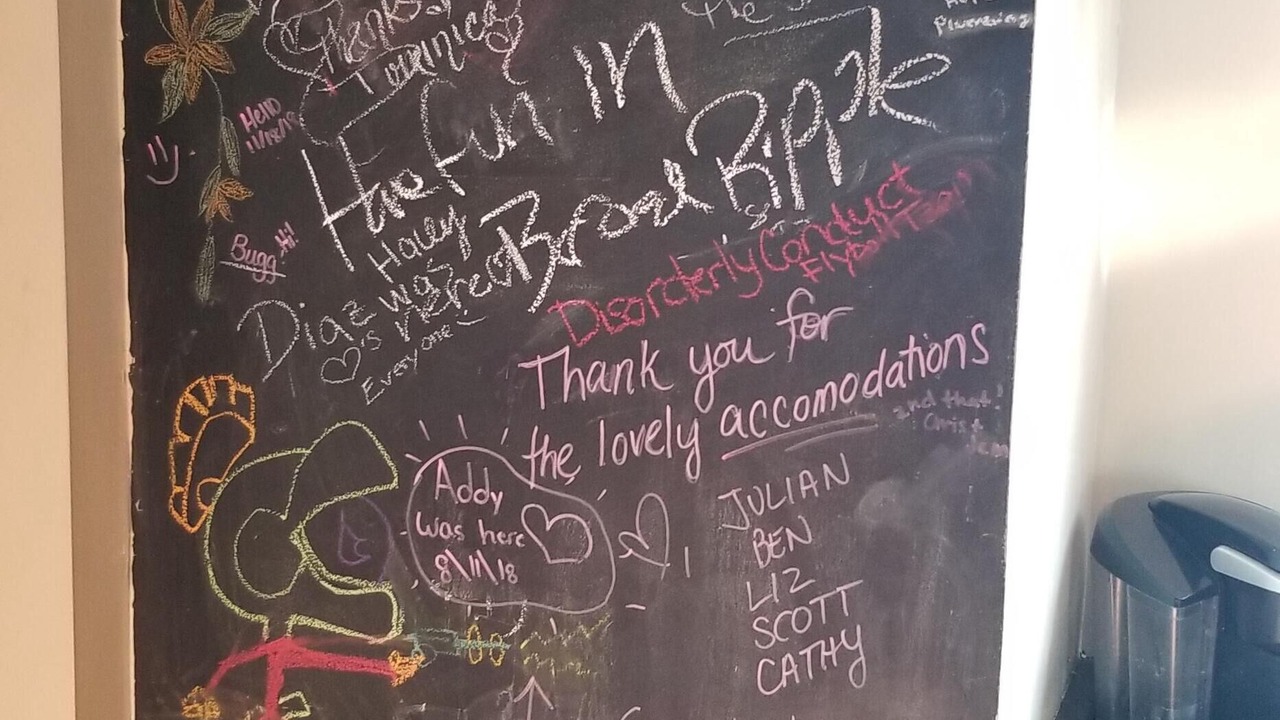 Thanks
Dominic
the
Hello
11/18/19
Have Fun in
Broad Ripple
Bugg Hi!
Haley
was
here
Diaz
♡'s
Everyone
Disorderly Conduct
Thank you for
the lovely accomodations
and that!
Addy
was here
8/11/18
JULIAN
BEN
LIZ
SCOTT
CATHY